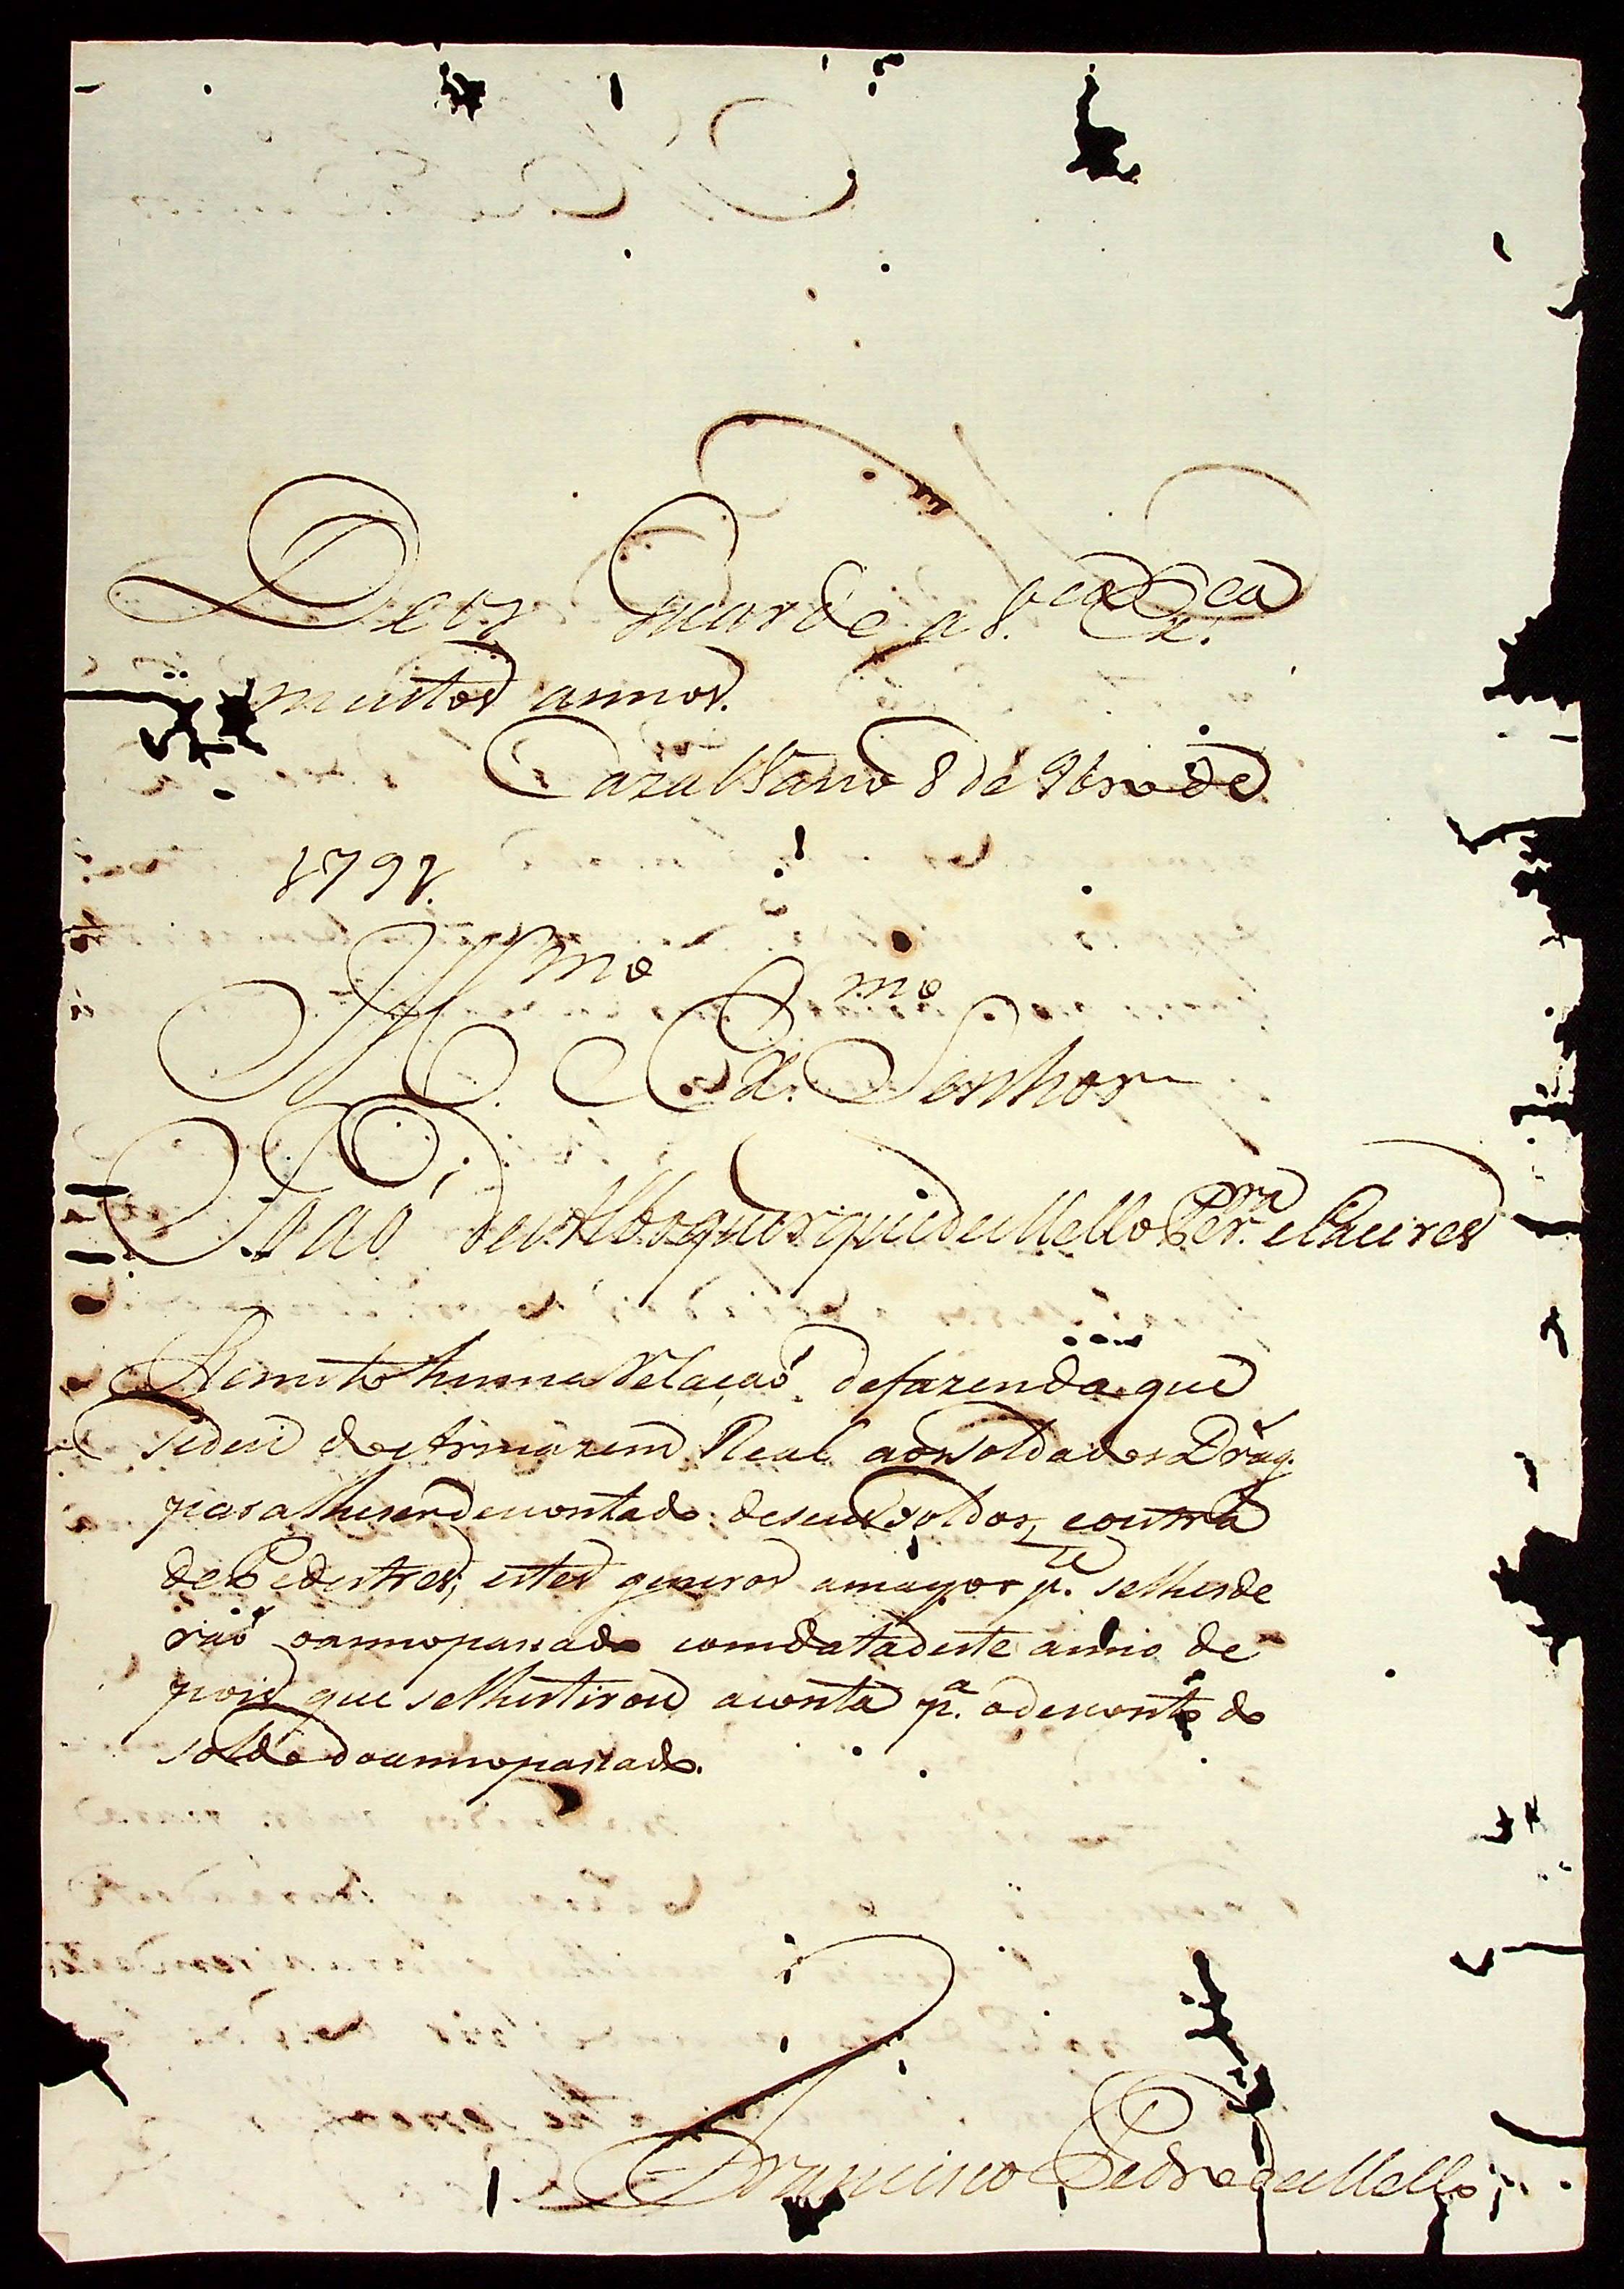 Deoz Guarde a V.cia Ex.cia
muitos annos.
Cazal Vasco 8 de 9bro de
1791.
Ill.mo e Ex.mo Senhor
João de Alboquerque de Mello Per.ra e Caceres
Remeto huma Relação de fazenda que
se deu do Armazem Real aos soldados Drag.
para lhe ser descontado de seus soldos, e outra
de Pedestres, estes generos a mayor p.te se lhes de
rão o anno passado com data deste anno de
pois que se lhes tirou a conta p.a o desconto do
soldo do anno passado.
Francisco Pedro de Mello